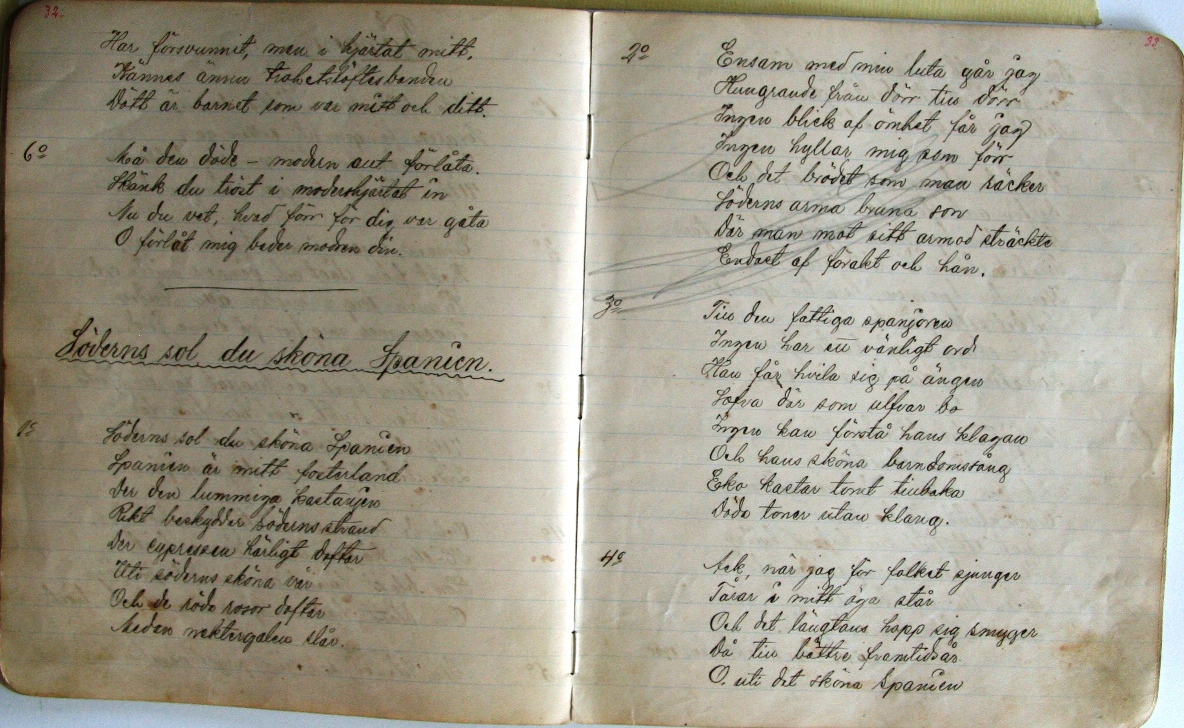 32.
Har försvunnit, men i hjärtat mitt.
Kännes ännu trohetslöftesbanden
Dött är barnet som var mitt och ditt.
6o
Må den döde – modern allt förlåta.
Skänk du tröst i modershjärtat in
Nu du vet, hvad förr för dig var gåta
O förlåt mig beder modren din.
Söderns sol du sköna Spanien.
1o
Söderns sol du sköna Spanien
Spanien är mitt fosterland
Der den lummiga kastanjen
Rikt beskydder söderns strand
Der cypressen härligt doftar
Uti söderns sköna vår
Och de röda rosor doftar
Medan nektergalen slår.
33
2o
Ensam med min luta går jag
Hungrande från dörr till dörr
Ingen blick af ömhet får jag
Ingen hyllar mig som förr
Och det brödet som man räcker
Söderns arma bruna son
Där man mot sitt armod sträckte
Endast af förakt och hån.
3o
Till den fattiga spanjoren
Ingen har ett vänligt ord
Han får hvila sig på ängen
Sofva där som ulfvar bo
Ingen kan förstå hans klagan
Och hans sköna barndomssång
Eko kastar tomt tillbaka
Döda toner utan klang.
4o
Ack, när jag för folket sjunger
Tårar i mitt öga står
Och det längtans hopp sig smyger
Då till bättre framtidsår
O. uti det sköna Spanien